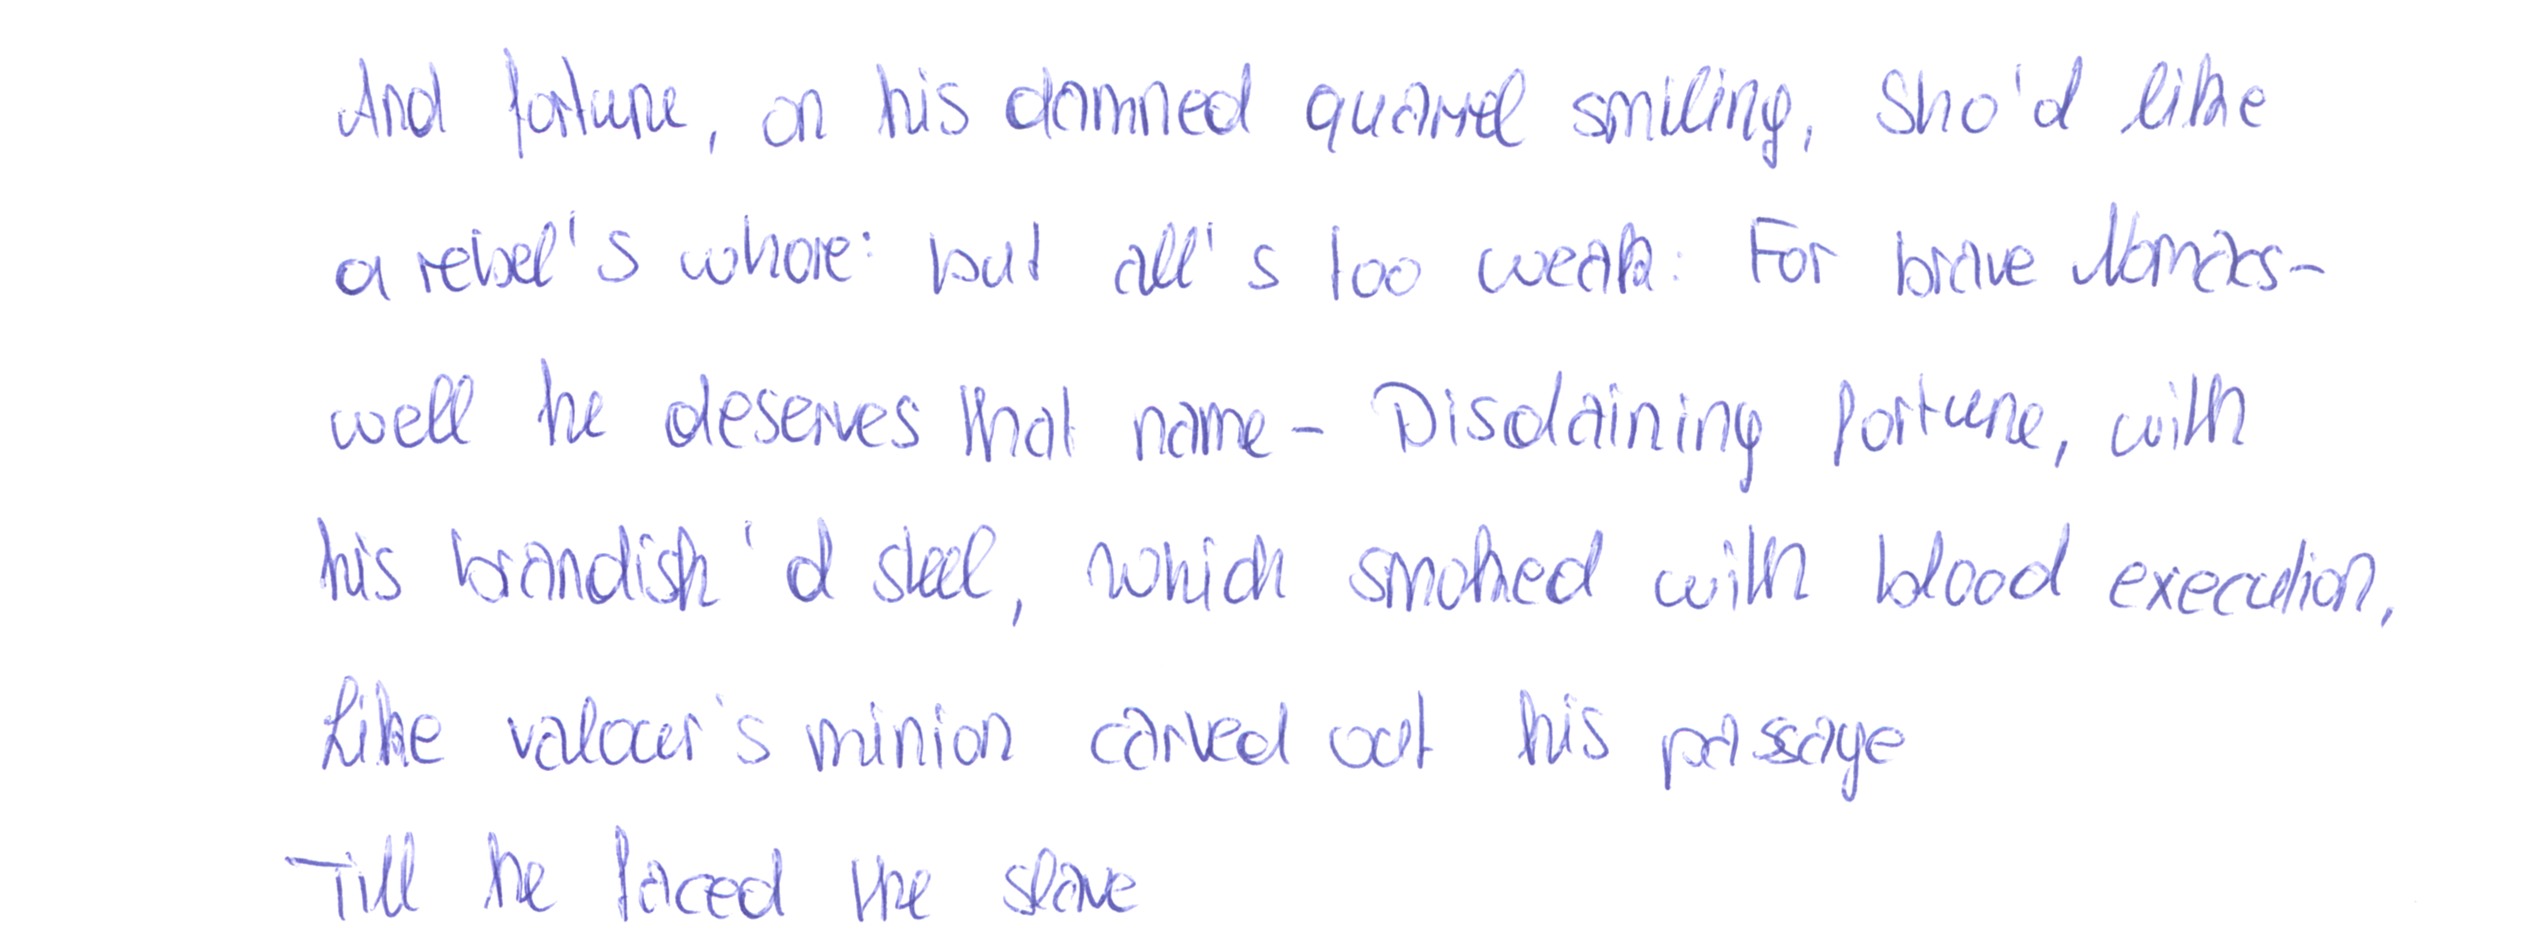 And fortune, on his damned quarrel smiling, Sho'd like
a rebel's whore: but all's too weak: For brave Nomaxs-
well he deserves that name - Disdaining fortune, with
his brandish'd steel, which smoked with blood execution,
Like valour's minion carved out his passage
Till he faced the slave